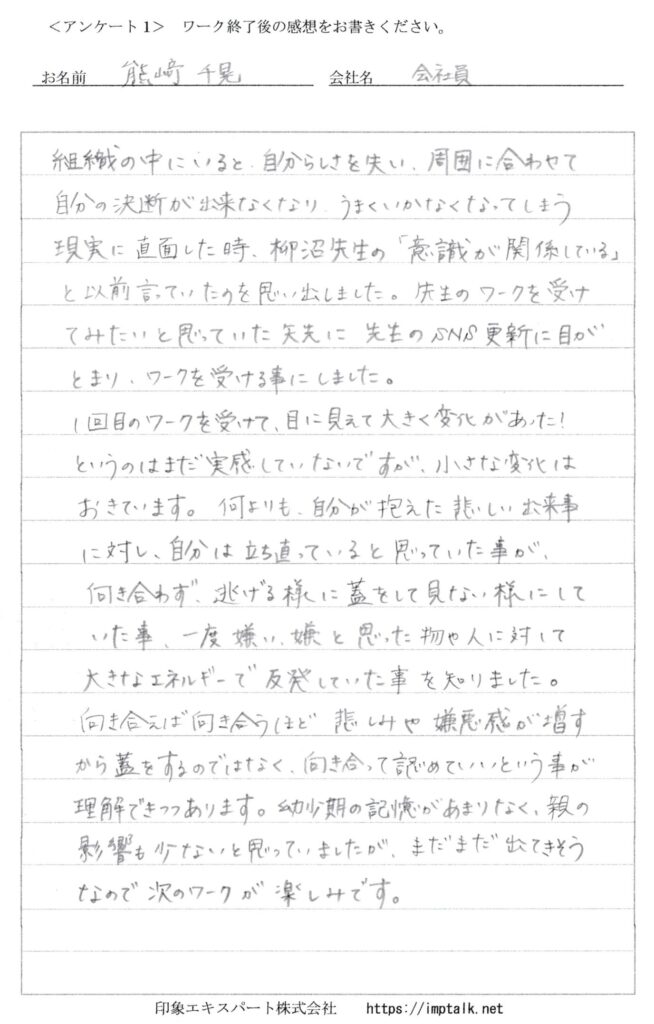 ＜アンケート1＞　ワーク終了後の感想をお書きください。
お名前　熊﨑 千晃　会社名　会社員
組織の中にいると、自分らしさを失い、周囲に合わせて
自分の決断が出来なくなり、うまくいかなくなってしまう
現実に直面した時、柳沼先生の「意識が関係している」
と以前言っていたのを思い出しました。先生のワークを受け
てみたいと思っていた矢先に 先生のSNS更新に目が
とまり、ワークを受ける事にしました。
1回目のワークを受けて、目に見えて大きく変化があった！
というのはまだ実感していないですが、小さな変化は
おきています。何よりも、自分が抱えた悲しい出来事
に対し、自分は立ち直っていると思っていた事が、
向き合わず、逃げる様に蓋をして見ない様にして
いた事、一度嫌い、嫌と思った物や人に対して
大きなエネルギーで反発していた事を知りました。
向き合えば向き合うほど 悲しみや嫌悪感が増す
から蓋をするのではなく、向き合って認めていいという事が
理解できつつあります。幼少期の記憶があまりなく、親の
影響も少ないと思っていましたが、まだまだ出てきそう
なので次のワークが楽しみです。
印象エキスパート株式会社　https://imptalk.net